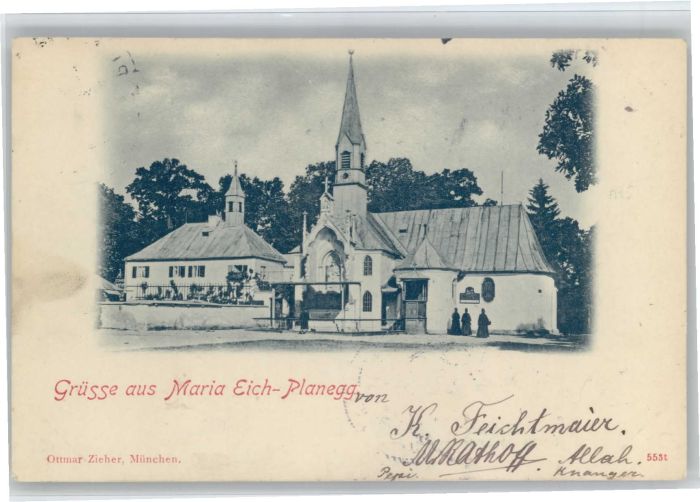 Grüsse aus Maria Eich-Planegg.
von
K. Feichtmaier.
Pepi.
Allah.
Ottmar Zieher, München.
5531